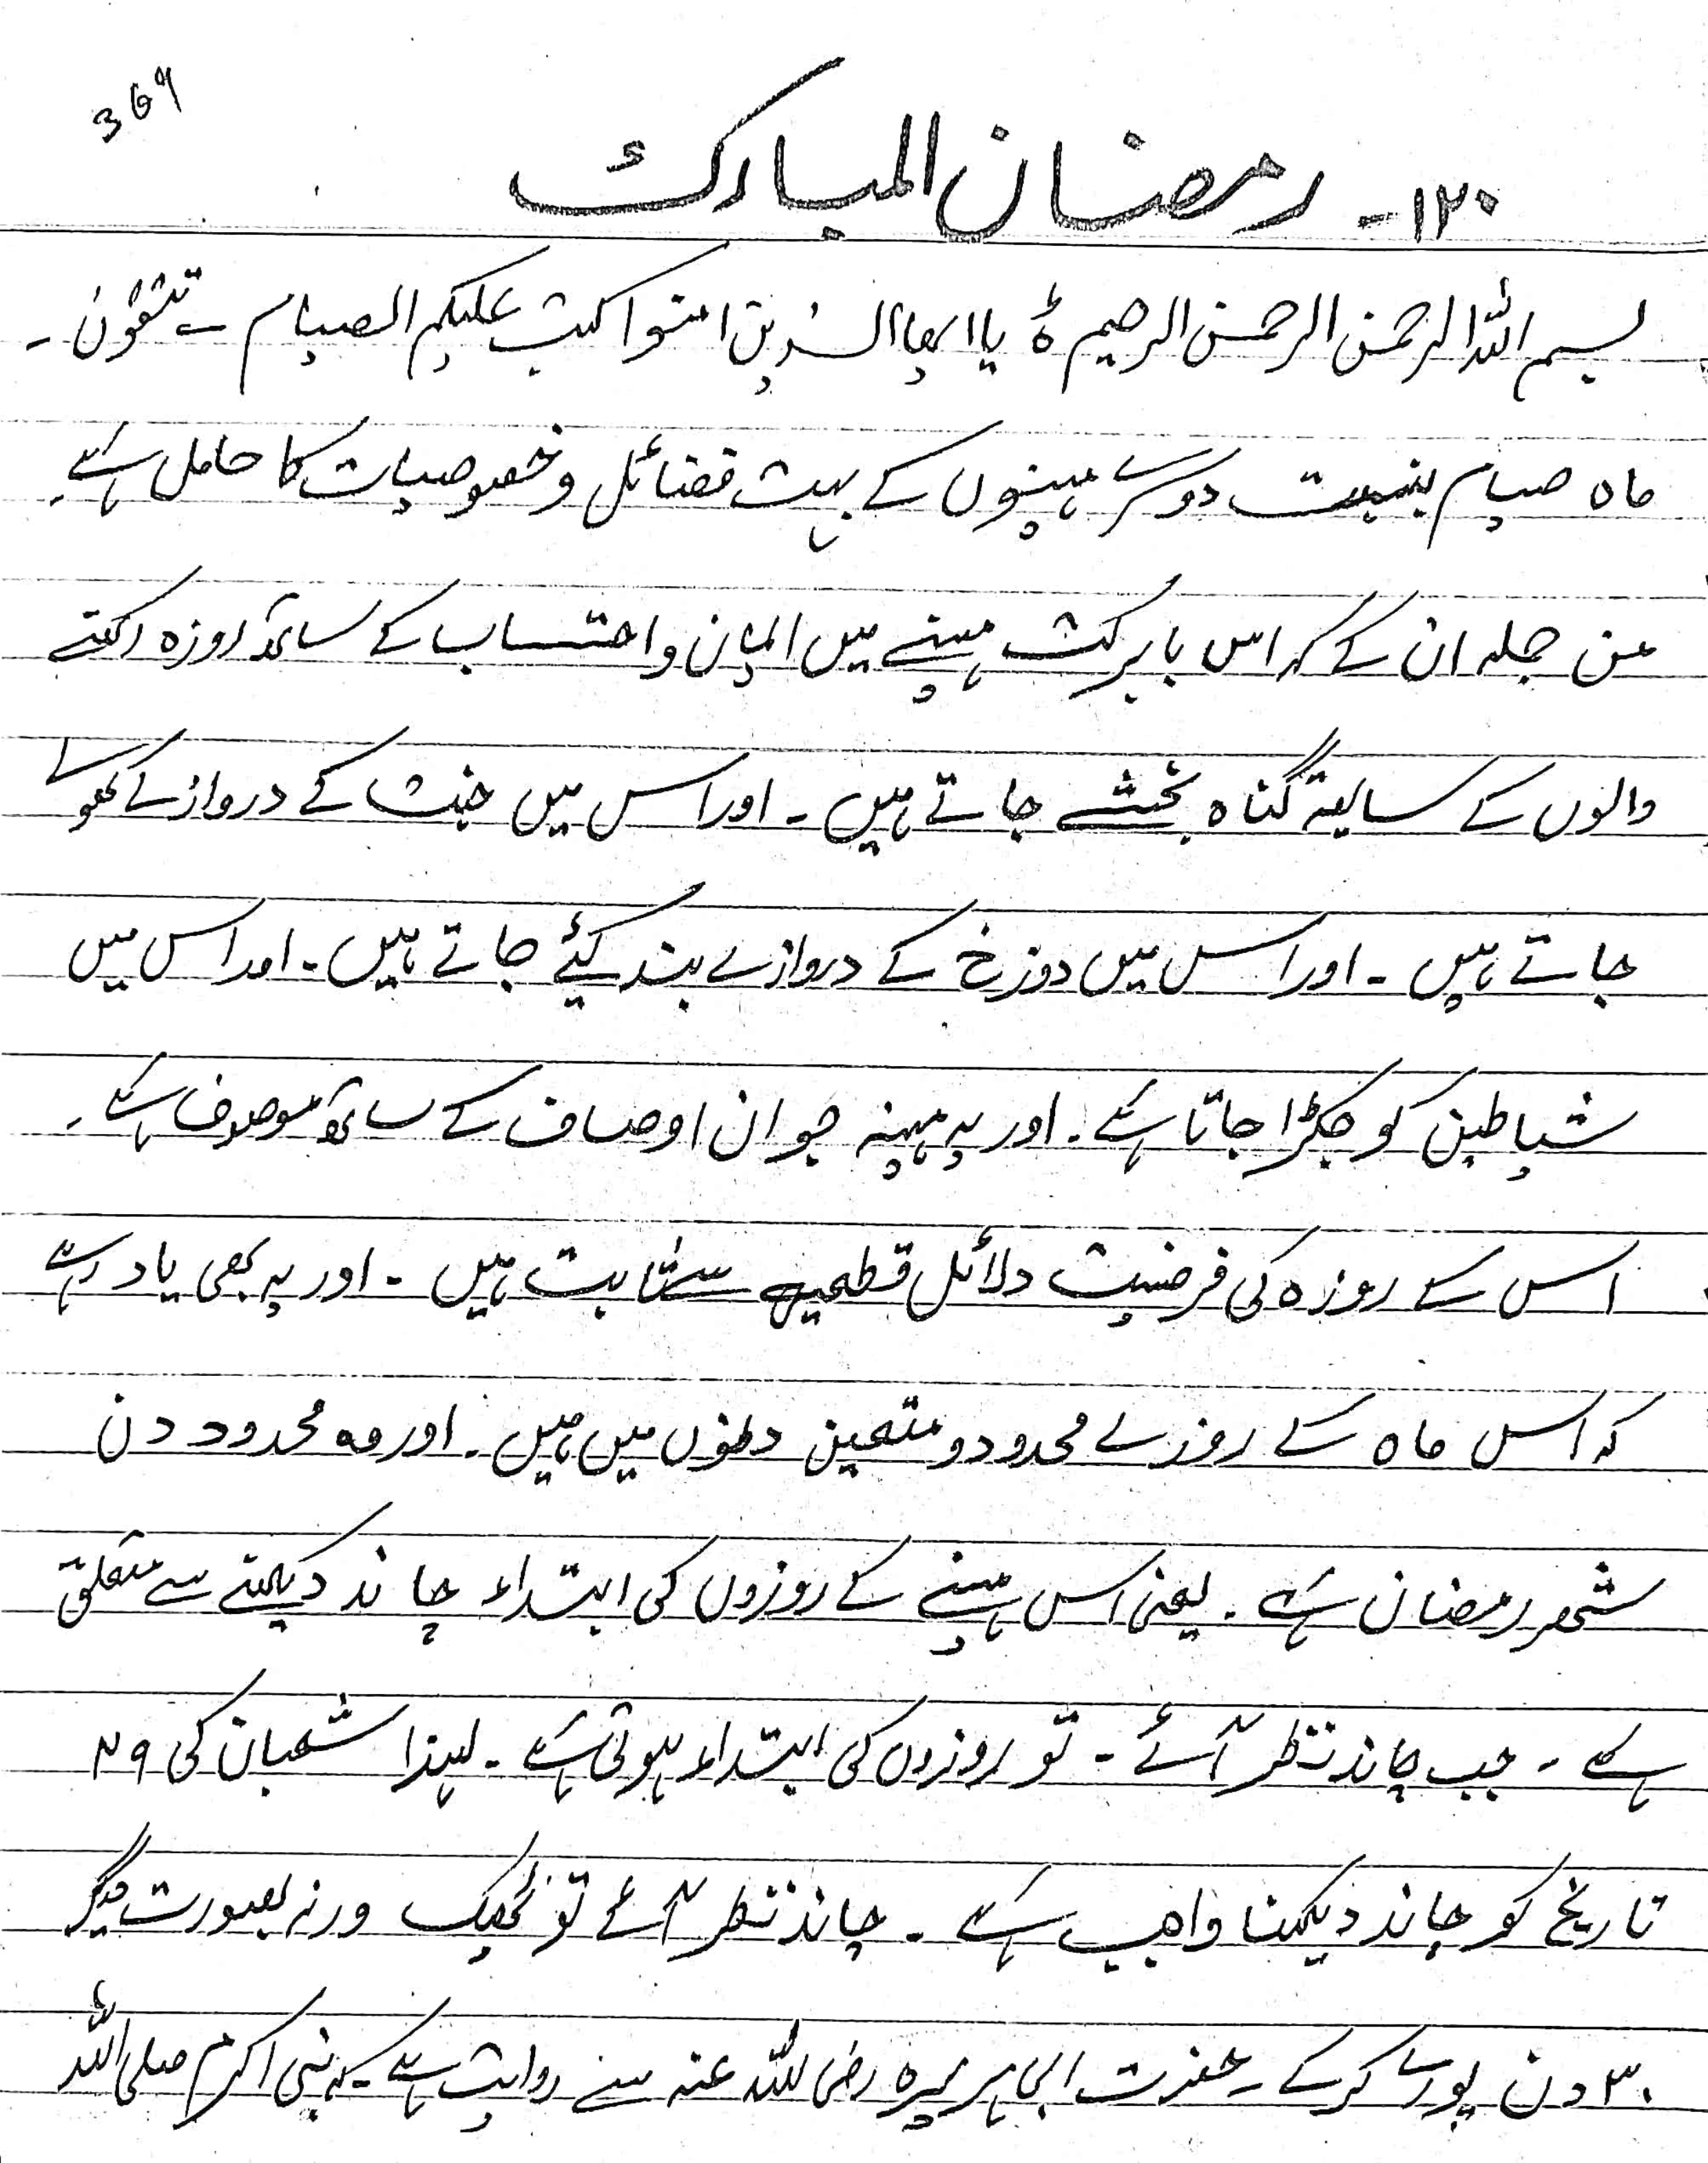 369
۱۲۰- رمضان المبارک
بسم اللہ الرحمن الرحمن الرحیم ہ یا ایھا الذین امنوا کتب علیکم الصیام سے تتقون ۔
ماہ صیام بنسبت دوسرے مہینوں کے بہت فضائل و خصوصیات کا حامل ہے۔
من جملہ ان کے کہ اس بابرکت مہینے میں ایمان و احتساب کے ساتھ روزہ رکھنے
والوں کے سابقہ گناہ بخشے جاتے ہیں ۔ اور اس میں جنت کے دروازے کھولے
جاتے ہیں ۔ اور اس میں دوزخ کے دروازے بند کیئے جاتے ہیں ۔ اور اس میں
شیاطین کو جکڑا جاتا ہے ۔ اور یہ مہینہ جو ان اوصاف کے ساتھ موصوف ہے ۔
اس کے روزہ کی فرضیت دلائل قطعیہ سے ثابت ہیں ۔ اور یہ بھی یاد رہے
کہ اس ماہ کے روزے محدود و متعین دنوں میں ہیں ۔ اور وہ محدود دن
شھر رمضان ہے ۔ یعنی اس مہینے کے روزوں کی ابتداء چاند دیکھنے سے متعلق
ہے ۔ جب چاند نظر آئے ۔ تو روزوں کی ابتداء ہوتی ہے ۔ لہذا شعبان کی ۲۹
تاریخ کو چاند دیکھنا واجب ہے ۔ چاند نظر آئے تو ٹھیک ورنہ بصورت دیگر
۳۰ دن پورے کرکے ۔ حضرت ابی ہریرہ رضی اللہ عنہ سے روایت ہے ۔ کہ نبی اکرم صلی اللہ